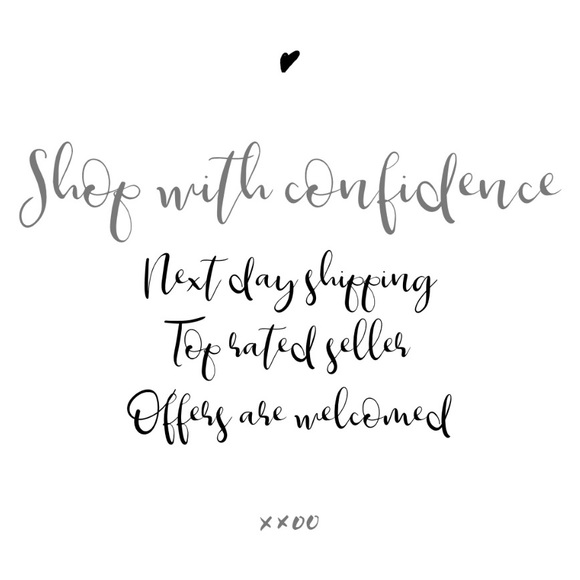 Shop with confidence
Next day shipping
Top rated seller
Offers are welcomed
xxoo